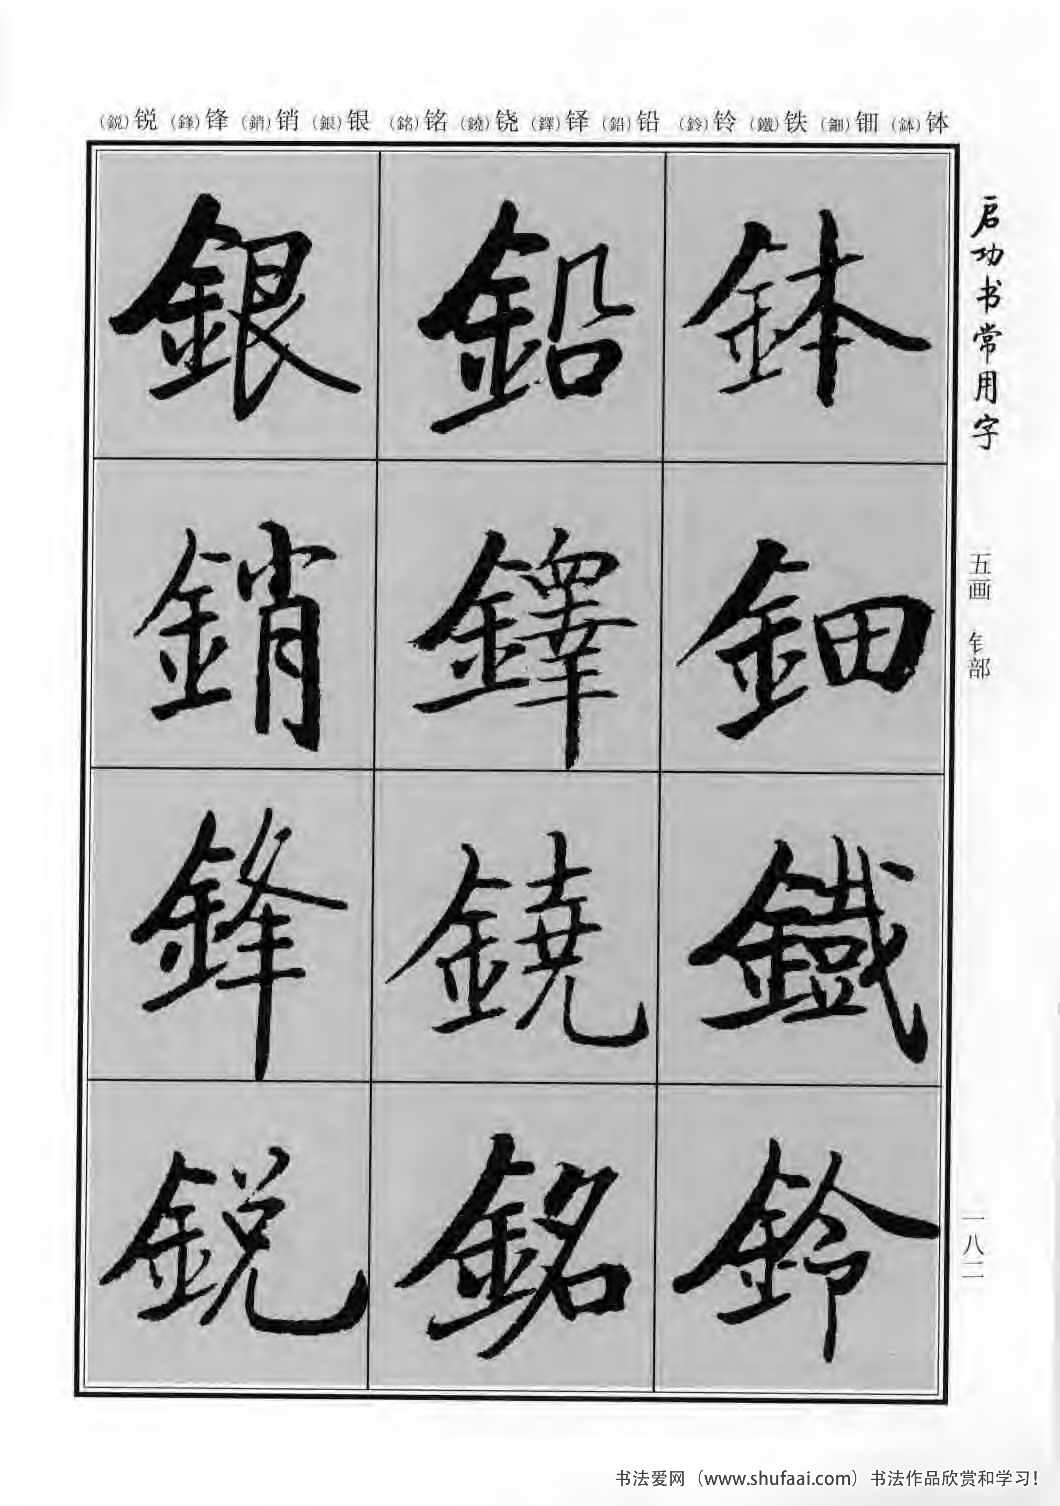 (鋭)锐 (鋒)锋 (銷)销 (銀)银 (銘)铭 (鐃)铙 (鐸)铎 (鉛)铅 (鈴)铃 (鐵)铁 (鈿)钿 (鉢)钵
启功书常用字
五画 钅部
一八二
鉢
鈿
鐵
鈴
鉛
鐸
鐃
銘
銀
銷
鋒
鋭
书法爱网（www.shufaai.com）书法作品欣赏和学习!